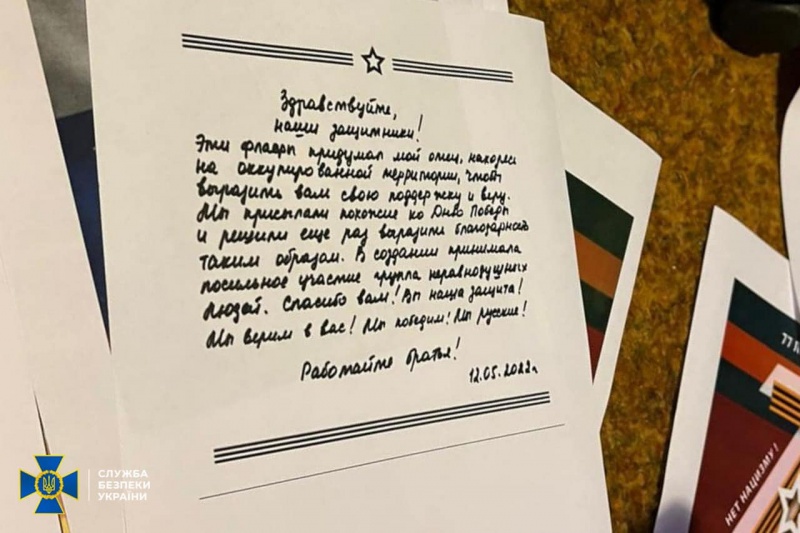 Здравствуйте,
наши защитники!
Эти флаеры придумал мой отец, находясь
на оккупированной территории, чтобы
выразить вам свою поддержку и веру.
Мы присылали похожие ко Дню Победы
и решили еще раз выразить благодарность
таким образом. В создании принимала
посильное участие группа неравнодушных
людей. Спасибо вам! Вы наша защита!
Мы верим в вас! Мы победим! Мы русские!
Работайте братья!
12.05.2022г
77
НЕТ НАЦИЗМУ!
СЛУЖБА
БЕЗПЕКИ
УКРАЇНИ